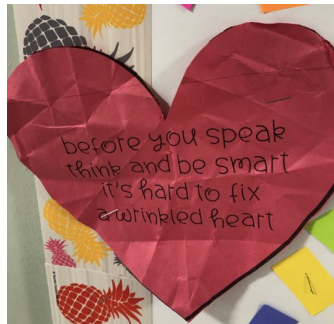 before you speak
think and be smart
it's hard to fix
a wrinkled heart